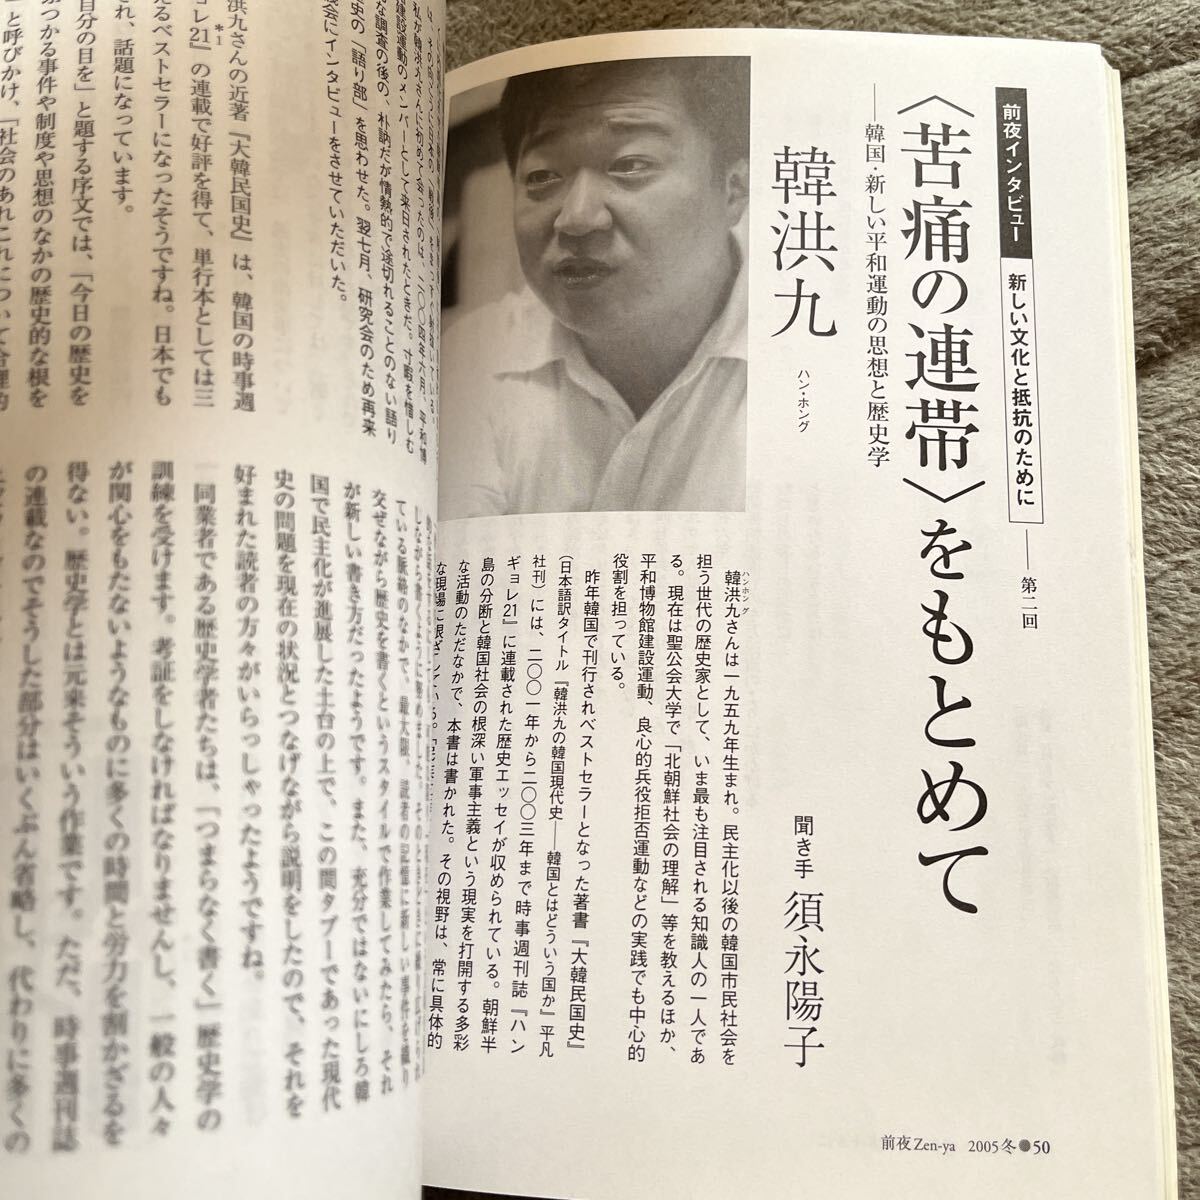 前夜インタビュー
新しい文化と抵抗のために
――第二回
〈苦痛の連帯〉をもとめて
――韓国・新しい平和運動の思想と歴史学
韓洪九
ハン・ホング
聞き手 須永陽子
ハンホング
韓洪九さんは一九五九年生まれ。民主化以後の韓国市民社会を
担う世代の歴史家として、いま最も注目される知識人の一人であ
る。現在は聖公会大学で「北朝鮮社会の理解」等を教えるほか、
平和博物館建設運動、良心的兵役拒否運動などの実践でも中心的
役割を担っている。
昨年韓国で刊行されベストセラーとなった著書『大韓民国史』
（日本語訳タイトル『韓洪九の韓国現代史――韓国とはどういう国か』平凡
社刊）には、二〇〇一年から二〇〇三年まで時事週刊誌『ハン
ギョレ21』に連載された歴史エッセイが収められている。朝鮮半
島の分断と韓国社会の根深い軍事主義という現実を打開する多彩
な活動のただなかで、本書は書かれた。その視野は、常に具体的
な現場に根ざしている。
私が韓洪九さんに初めて会ったのは、二〇〇四年六月、平和博
建設運動のメンバーとして来日されたときだ。寸暇を惜しむ
な調査の後の、朴訥だが情熱的で途切れることのない語り
史の「語り部」を思わせた。翌七月、研究会のため再来
機会にインタビューをさせていただいた。
洪九さんの近著『大韓民国史』は、韓国の時事週
*1
ョレ21』の連載で好評を得て、単行本としては三
えるベストセラーになったそうですね。日本でも
され、話題になっています。
自分の目を」と題する序文では、「今日の歴史を
ぶつかる事件や制度や思想のなかの歴史的な根を
」と呼びかけ、「社会のあれこれについて合理的
ている脈絡のなかで、最大限、読者の記憶に新しい事件を織り
交ぜながら歴史を書くというスタイルで作業してみたら、それ
が新しい書き方だったようです。また、充分ではないにしろ韓
国で民主化が進展した土台の上で、この間タブーであった現代
史の問題を現在の状況とつなげながら説明をしたので、それを
好まれた読者の方々がいらっしゃったようですね。
同業者である歴史学者たちは、「つまらなく書く」歴史学の
訓練を受けます。考証をしなければなりませんし、一般の人々
が関心をもたないようなものに多くの時間と労力を割かざるを
得ない。歴史学とは元来そういう作業です。ただ、時事週刊誌
の連載なのでそうした部分はいくぶん省略し、代わりに多くの
前夜 Zen-ya 2005冬●50